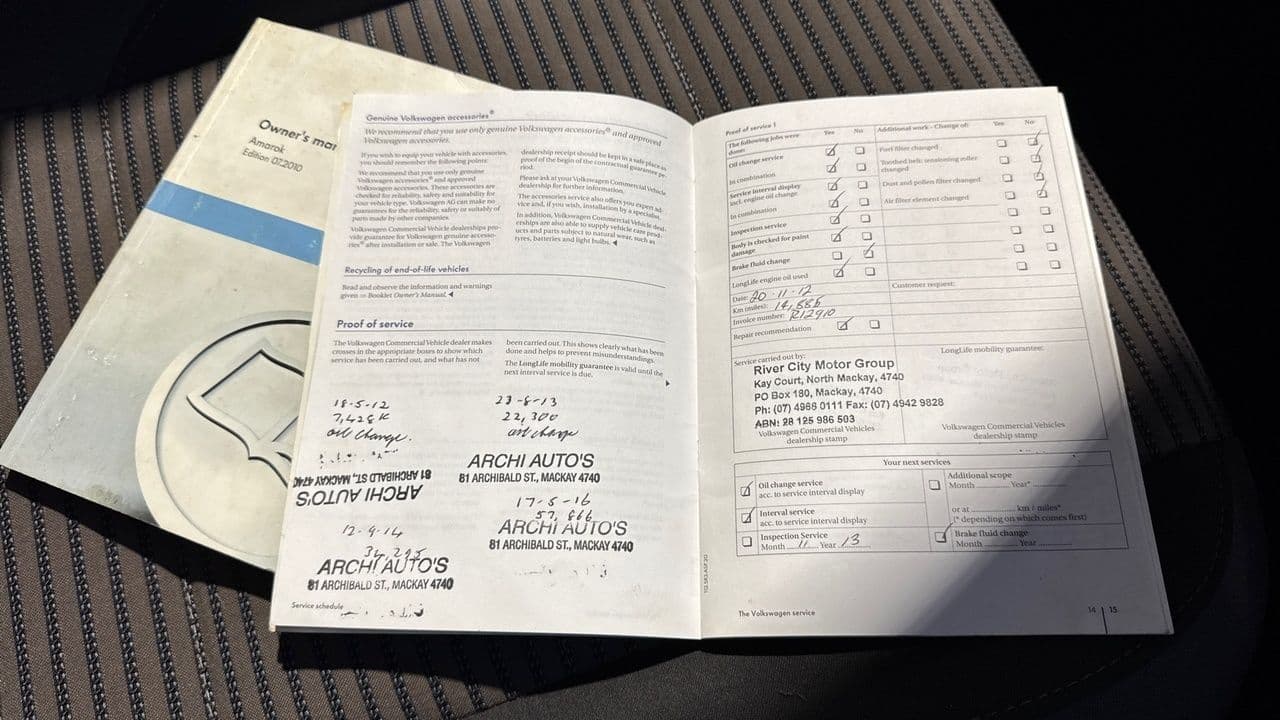 Owner's ma
Amarok
Edition 07.2010
Genuine Volkswagen accessories®
We recommend that you use only genuine Volkswagen accessories® and approved
Volkswagen accessories.
If you wish to equip your vehicle with accessories,
you should remember the following points:
We recommend that you use only genuine
Volkswagen accessories® and approved
Volkswagen accessories. These accessories are
checked for reliability, safety and suitability for
your vehicle type. Volkswagen AG can make no
guarantees for the reliability, safety or suitably of
parts made by other companies.
Volkswagen Commercial Vehicle dealerships pro-
vide guarantee for Volkswagen genuine accesso-
ries® after installation or sale. The Volkswagen
dealership receipt should be kept in a safe place as
proof of the begin of the contractual guarantee pe-
riod.
Please ask at your Volkswagen Commercial Vehicle
dealership for further information.
The accessories service also offers you expert ad-
vice and, if you wish, installation by a specialist.
In addition, Volkswagen Commercial Vehicle deal-
erships are also able to supply vehicle care prod-
ucts and parts subject to natural wear, such as
tyres, batteries and light bulbs. ◀
Recycling of end-of-life vehicles
Read and observe the information and warnings
given ⇒ Booklet Owner's Manual. ◀
Proof of service
The Volkswagen Commercial Vehicle dealer makes
crosses in the appropriate boxes to show which
service has been carried out, and what has not
been carried out. This shows clearly what has been
done and helps to prevent misunderstandings.
The LongLife mobility guarantee is valid until the
next interval service is due.
18-5-12
7,428 K
oil change.
81 ARCHIBALD ST., MACKAY 4740
ARCHI AUTO'S
12-9-14
34,295
ARCHI AUTO'S
81 ARCHIBALD ST., MACKAY 4740
22,300
oil change
ARCHI AUTO'S
81 ARCHIBALD ST., MACKAY 4740
17-5-16
57,866
ARCHI AUTO'S
81 ARCHIBALD ST., MACKAY 4740
Service schedule
Proof of service 1
The following jobs were
done:
Yes
No
Oil change service
In combination
Service interval display
incl. engine oil change
In combination
Inspection service
Body is checked for paint
damage
Brake fluid change
LongLife engine oil used
Date: 20-11-12
Km (miles): 14,886
Invoice number: R12910
Repair recommendation
Additional work - Change of:
Yes
No
Fuel filter changed
Toothed belt; tensioning roller
changed
Dust and pollen filter changed
Air filter element changed
Customer request:
Service carried out by:
River City Motor Group
Kay Court, North Mackay, 4740
PO Box 180, Mackay, 4740
Ph: (07) 4966 0111 Fax: (07) 4942 9828
ABN: 28 125 986 503
Volkswagen Commercial Vehicles
dealership stamp
LongLife mobility guarantee:
Volkswagen Commercial Vehicles
dealership stamp
Your next services
Oil change service
acc. to service interval display
Interval service
acc. to service interval display
Inspection Service
Month 11 Year 13
Additional scope
Month Year*
or at km / miles*
(* depending on which comes first)
Brake fluid change
Month Year
The Volkswagen service
14 | 15